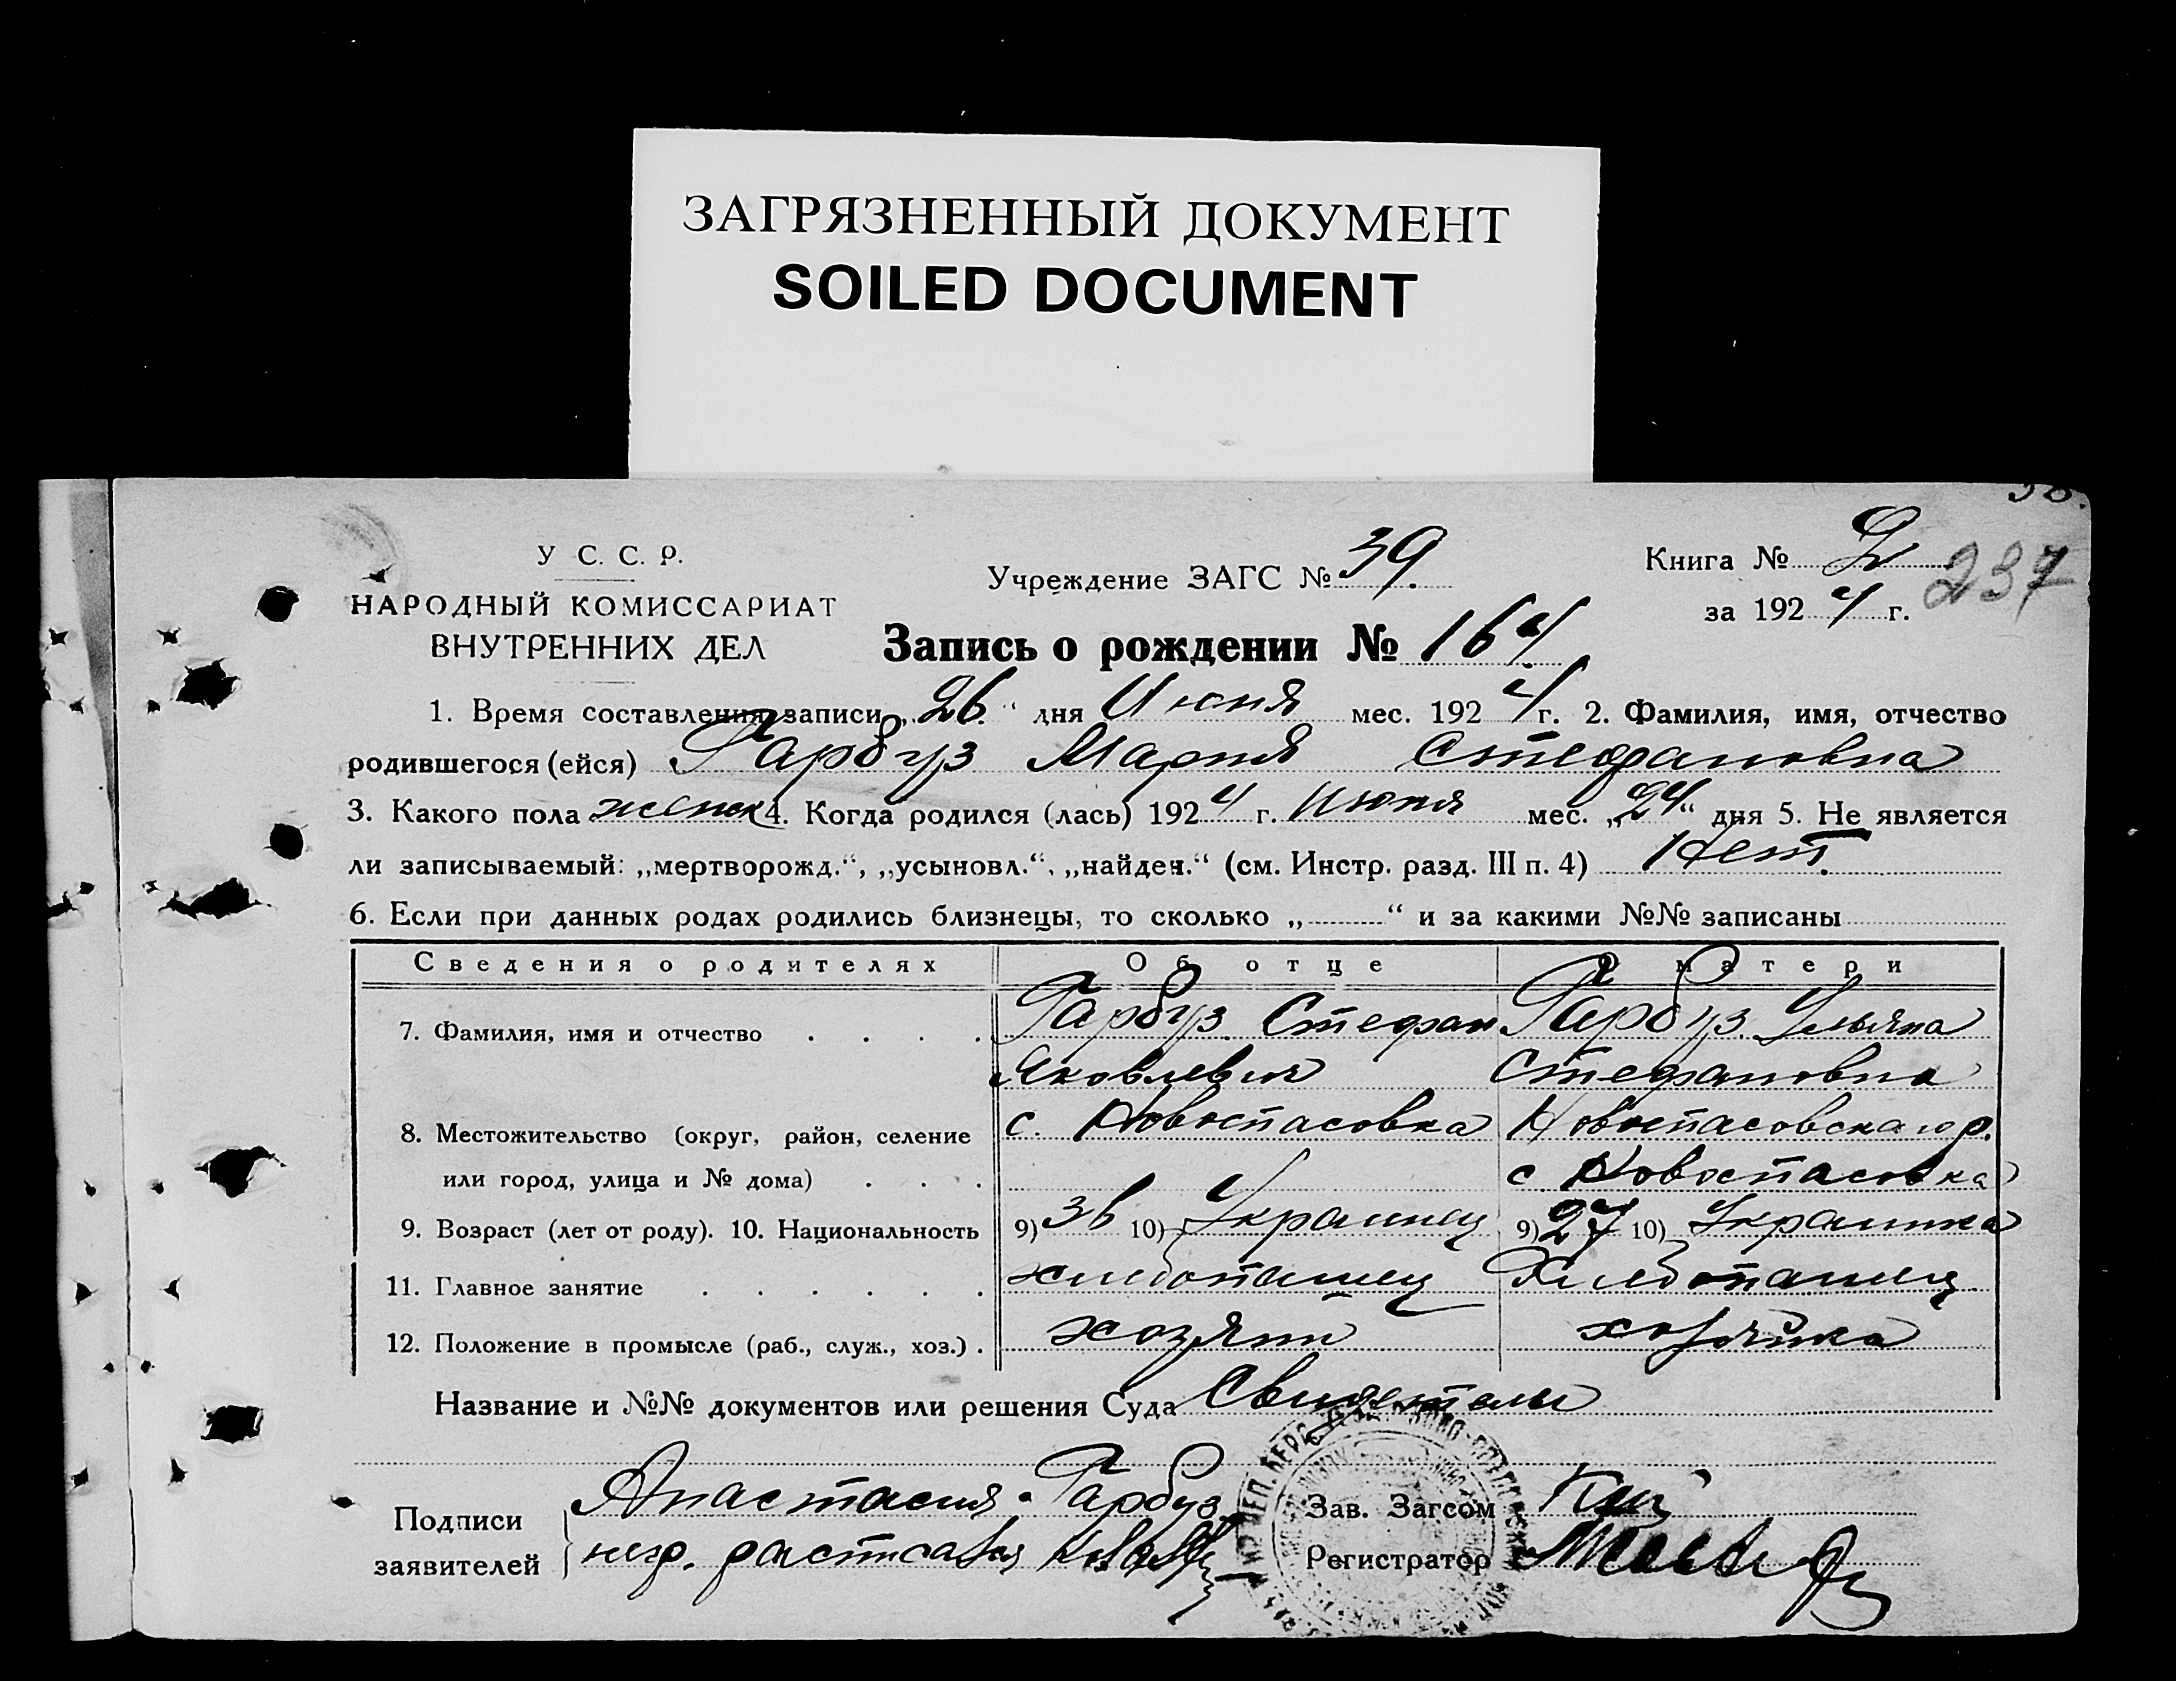 ЗАГРЯЗНЕННЫЙ ДОКУМЕНТ
SOILED DOCUMENT
У С. С. Р.
НАРОДНЫЙ КОМИССАРИАТ
ВНУТРЕННИХ ДЕЛ
Учреждение ЗАГС № 39.
Книга № 2
за 1924 г.
237
Запись о рождении № 164.
1. Время составления записи „26.“ дня Июня мес. 1924 г. 2. Фамилия, имя, отчество
родившегося (ейся) Гарбуз Мария Стефановна
3. Какого пола женск 4. Когда родился (лась) 1924 г. Июня мес. „24“ дня 5. Не является
ли записываемый: „мертворожд.“, „усыновл.“, „найден.“ (см. Инстр. разд. III п. 4) Нет.
6. Если при данных родах родились близнецы, то сколько „ “ и за какими №№ записаны
Сведения о родителях Об отце О матери
7. Фамилия, имя и отчество . . . . Гарбуз Стефан Гарбуз Ульяна
Яковлевич Стефановна
8. Местожительство (округ, район, селение с. Новоспасовка Новоспасовскаго р.
или город, улица и № дома) . . . . с Новоспасовка
9. Возраст (лет от роду). 10. Национальность 9) 36 10) Украинец 9) 27 10) Украинка
11. Главное занятие . . . . . . хлебопашец Хлебопашец
12. Положение в промысле (раб., служ., хоз.) . хозяин хозяйка
Название и №№ документов или решения Суда Свидетели
Подписи заявителей
Анастасия Гарбуз
негр. расписался
Зав. Загсом
Регистратор